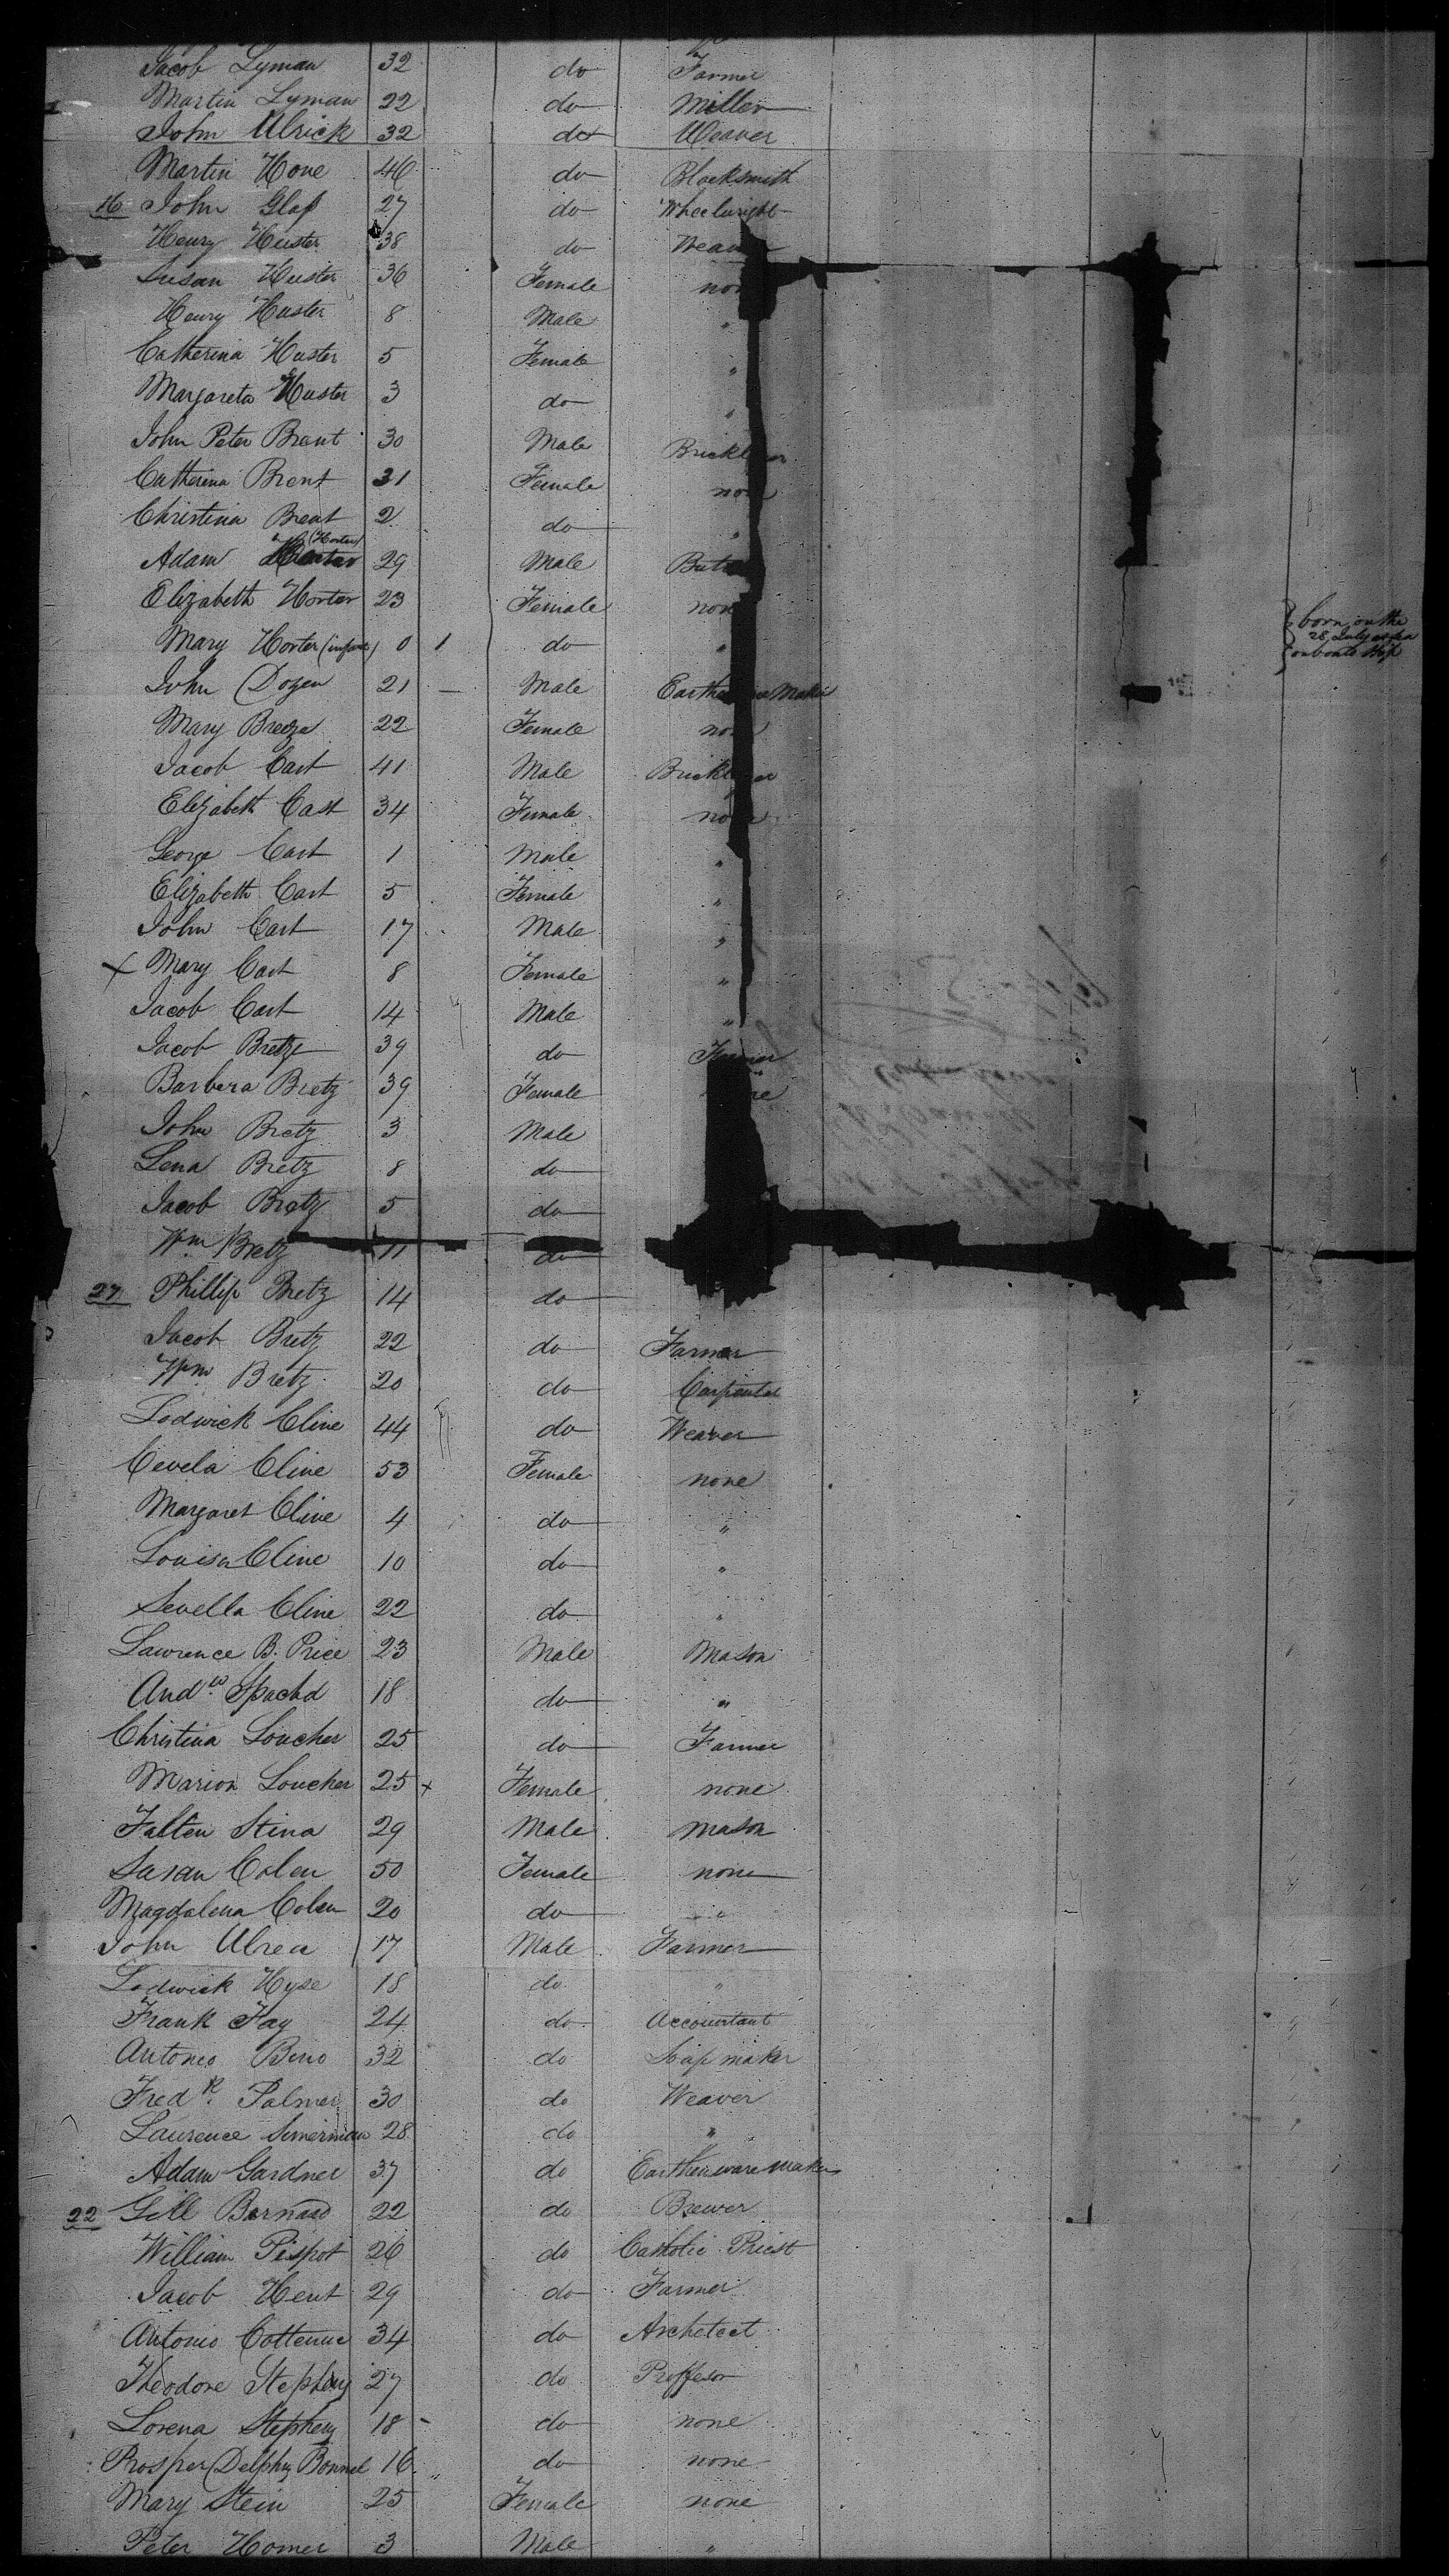 Jacob Lyman 32 do Farmer
Martin Lyman 22 do Miller
John Ulrick 32 do Weaver
Martin Hone 46 do Blacksmith
16 John Glaß 27 do Wheelwright
Henry Huster 38 do Weav
Susan Huster 36 Female non
Henry Huster 8 Male "
Catherina Huster 5 Female "
Margareta Huster 3 do "
John Peter Brent 30 Male Brickl er
Catherina Brent 31 Female non
Christina Brent 2 do "
(Horter)
Adam 29 Male But
Elizabeth Horter 23 Female non
Mary Horter (infant) 0 1 do " born on the
28 July at sea
on board Ship
John Dozen 21 — Male Earthe Maker
Mary Breeze 22 Female non
Jacob Cast 41 Male Brickl er
Elizabeth Cast 34 Female no
George Cast 1 Male "
Elizabeth Cast 5 Female "
John Cast 17 Male "
x Mary Cast 8 Female "
Jacob Cast 14 Male "
Jacob Bretze 39 do Farmer
Barbera Bretz 39 Female ne
John Bretz 3 Male
Lena Bretz 8 do
Jacob Bretz 5 do
Wm Bretz 11 do
27 Phillip Bretz 14 do
Jacob Bretz 22 do Farmer
Wm Bretz 20 do Carpenter
Lodwick Cline 44 do Weaver
Cevela Cline 53 Female none
Margaret Cline 4 do "
Louisa Cline 10 do "
Sevella Cline 22 do "
Lawrence B. Price 23 Male Mason
Andw Spachd 18 do "
Christina Loucher 25 do Farmer
Marion Loucher 25 x Female none
Falten Stina 29 Male mason
Susan Colen 50 Female none
Magdalena Colen 20 do "
John Ulrea 17 Male Farmer
Lodwick Hyse 18 do "
Frank Fay 24 do Accountant
Antonio Beno 32 do Soap maker
Fredk Palmer 30 do Weaver
Laurence Simerman 28 do "
Adam Gardner 37 do Earthenware maker
22 Gill Barnard 22 do Brewer
William Pispot 26 do Catholic Priest
Jacob Hent 29 do Farmer
Antonio Cottenue 34 do Archetect
Theodore Stepheny 27 do Proffesor
Lorena Stepheny 18 - do none
Prosper Delphy Bonnel 16 do none
Mary Stein 25 Female none
Peter Homer 3 Male "